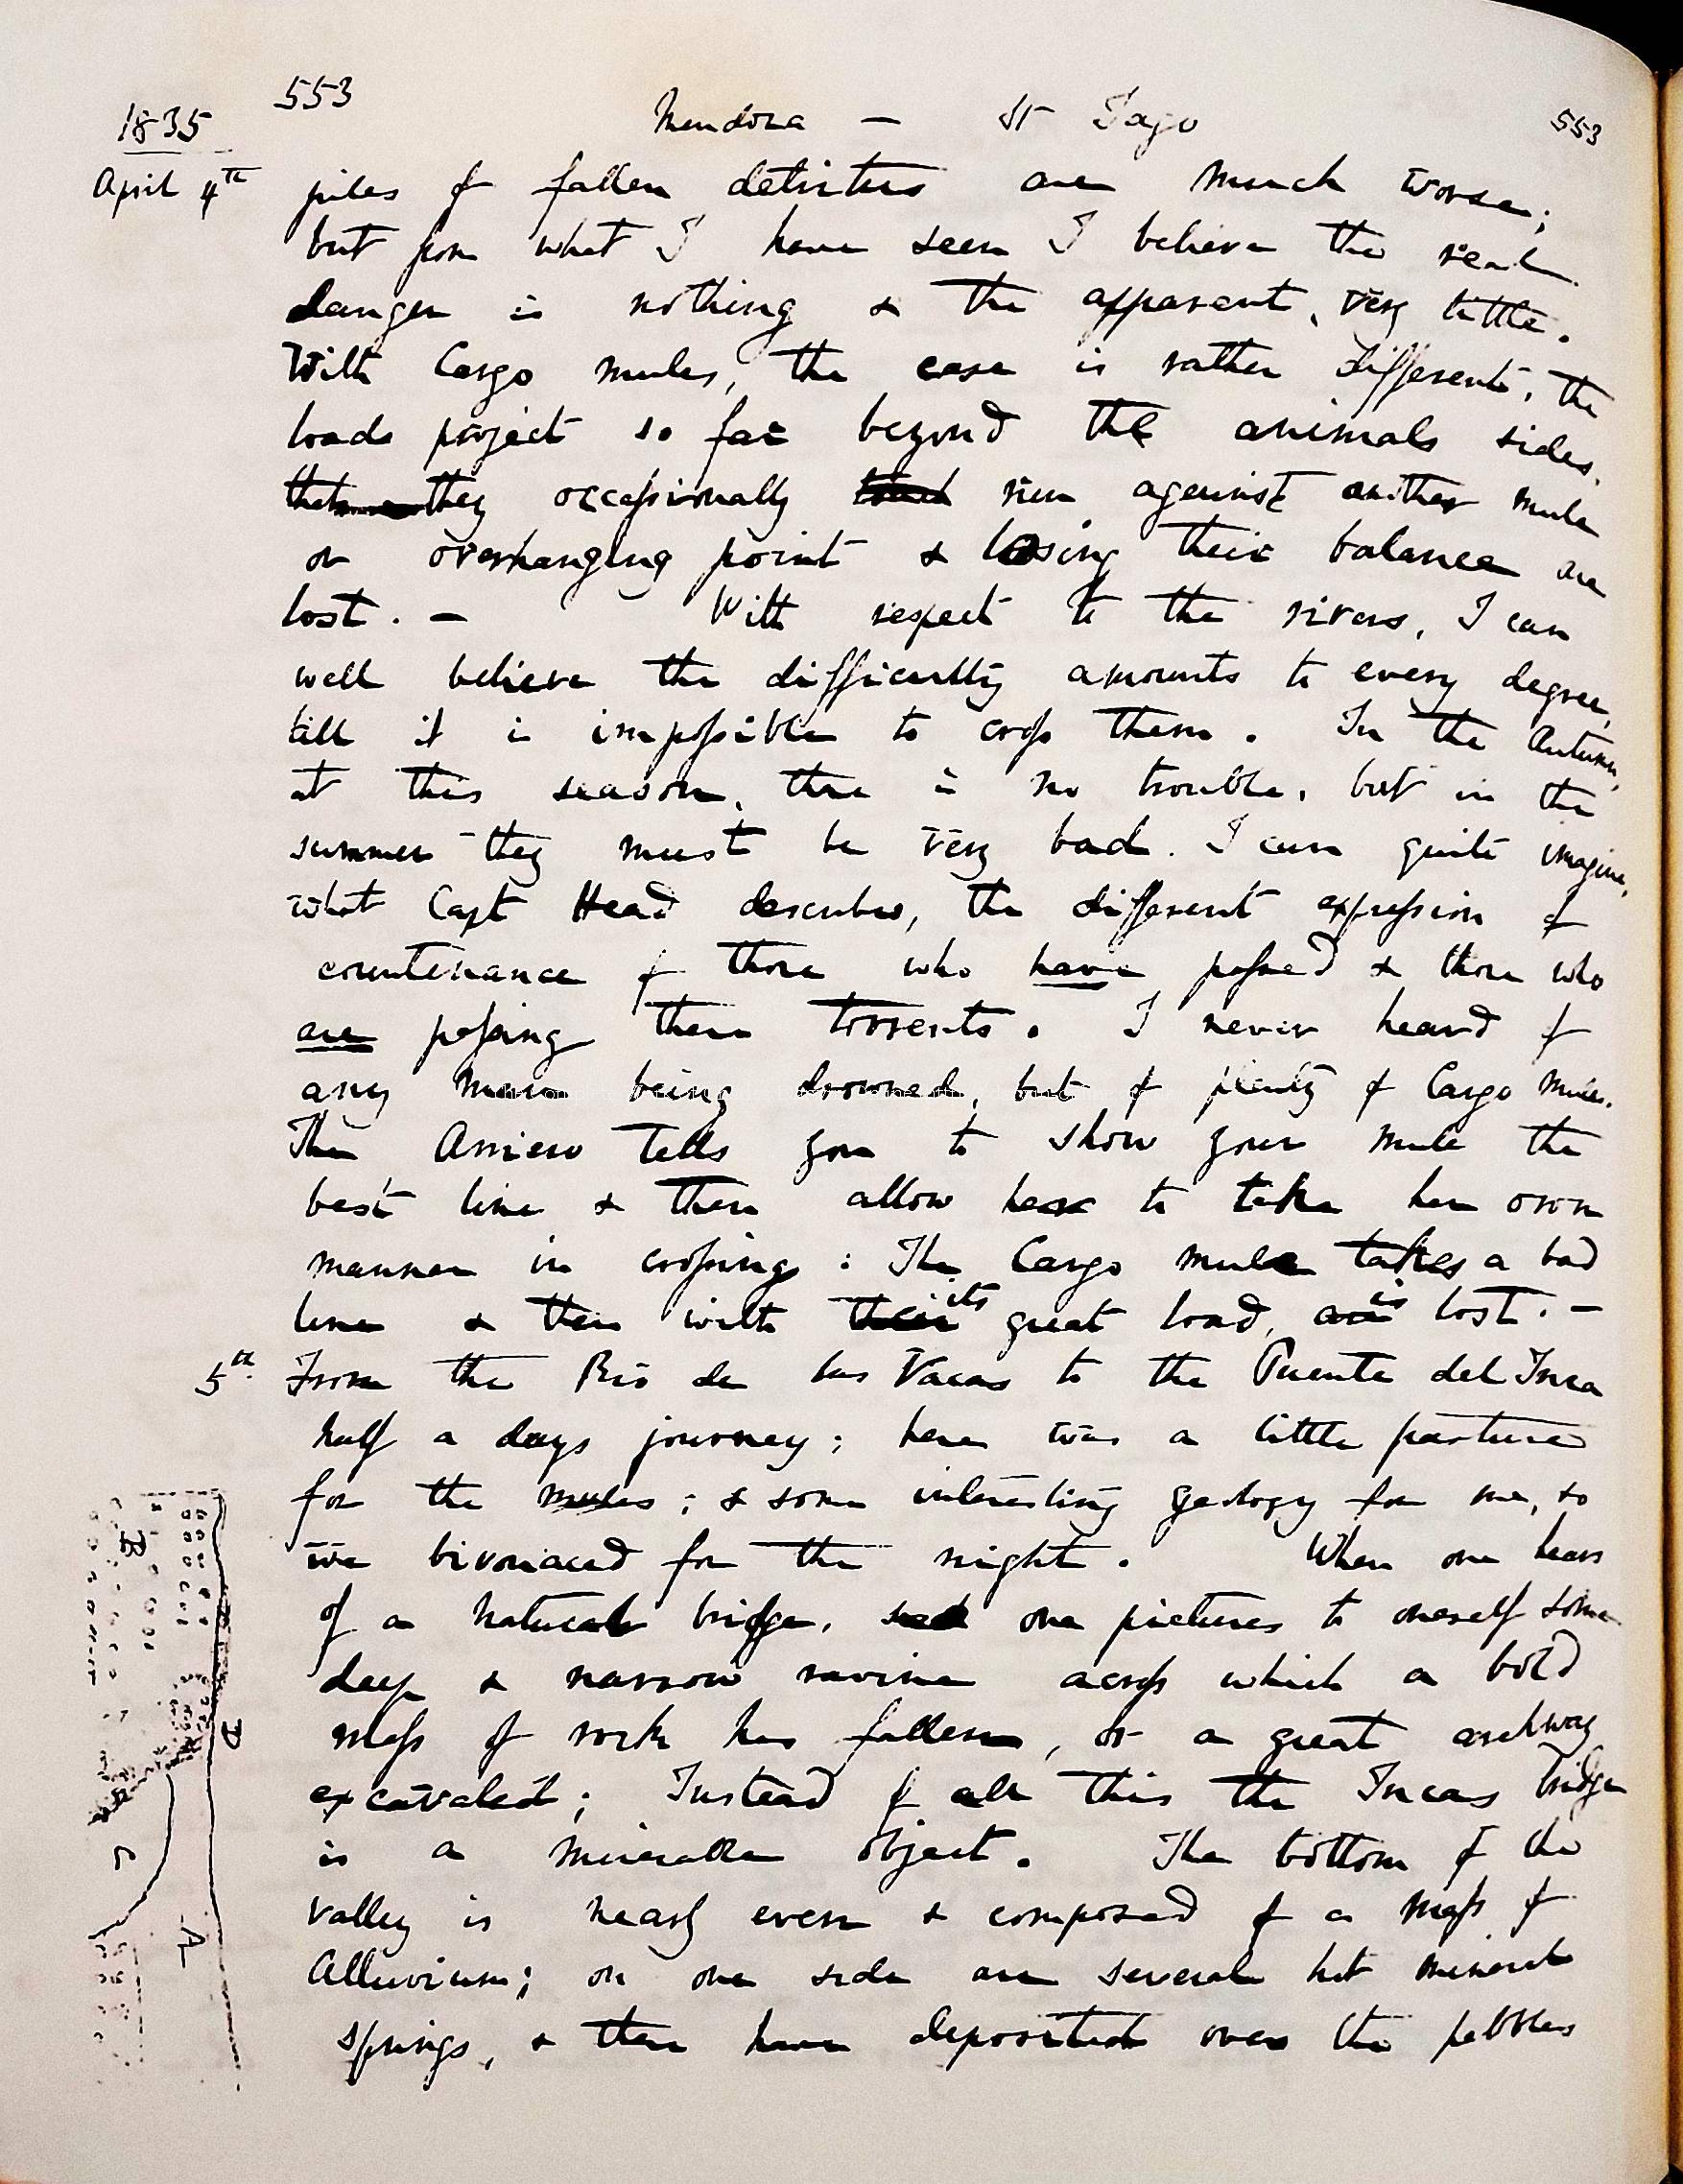 553
1835 Mendoza — St Jago 553
April 4th piles of fallen detritus are much worse;
but from what I have seen I believe the real
danger is nothing & the apparent, very little.
With Cargo mules, the case is rather different, the
loads project so far beyond the animals sides,
they occasionally run against another mule
or overhanging point & losing their balance are
lost. — With respect to the rivers, I can
well believe the difficulty amounts to every degree,
till it is impossible to cross them. In the Autumn,
at this season, there is no trouble, but in the
summer they must be very bad. I can quite imagine,
what Capt Head describes, the different expression of
countenance of those who have passed & those who
are passing these torrents. I never heard of
any man being drowned, but of plenty of Cargo Mules.
The Arriero tells you to show your mule the
best line & then allow her to take her own
manner in crossing: The Cargo mule takes a bad
line & then with their its great load, are is lost. —
5th. From the Rio de las Vacas to the Puente del Inca
half a days journey; here was a little pasture
for the mules; & some interesting geology for me, so
we bivouaced for the night. When one hears
of a natural bridge, one pictures to oneself some
deep & narrow ravine across which a bold
mass of rock has fallen, or a great archway
excavated; Instead of all this the Incas bridge
is a miserable object. The bottom of the
valley is nearly even & composed of a mass of
Alluvium; on one side are several hot mineral
springs, & these have deposited over the pebbles
B
D
C
A